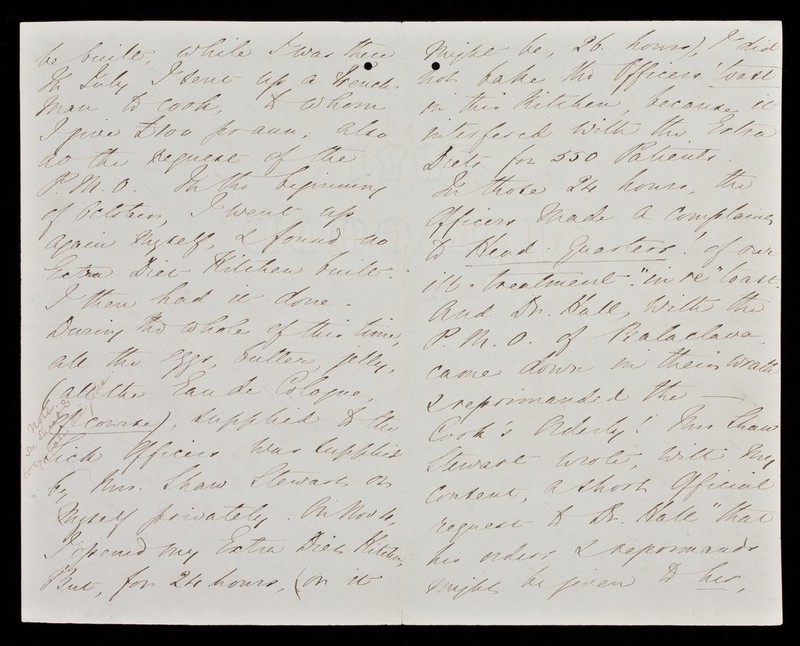 be built, while I was there
In July I sent up a French-
man to cook, to whom
I give £100 per ann, also
at the request of the
P.M.O. In the beginning
of October, I went up
again myself, & found no
Extra Diet Kitchen built.
I then had it done.
During the whole of this time,
all the eggs, butter, jelly,
(all the Eau de Cologne,
of course), supplied to the
Sick Officers was supplied
by Mrs. Shaw Stewart or
myself privately. On Nov 4,
I opened my Extra Diet Kitchen,
But, for 24 hours, (or it
note
might be, 26 hours), I did
not bake the Officers' toast
in this Kitchen, because it
interfered with the Extra
Diets for 550 Patients.
In those 24 hours, the
Officers made a complaint
to Head-Quarters! of our
ill-treatment "in re" toast.
And Dr. Hall, with the
P.M.O. of Balaclava,
came down in their wrath
& reprimanded the —
Cook's Orderly! Mrs Shaw
Stewart wrote, with my
consent, a short Official
request to Dr. Hall "that
his orders & reprimands
might be given to her,